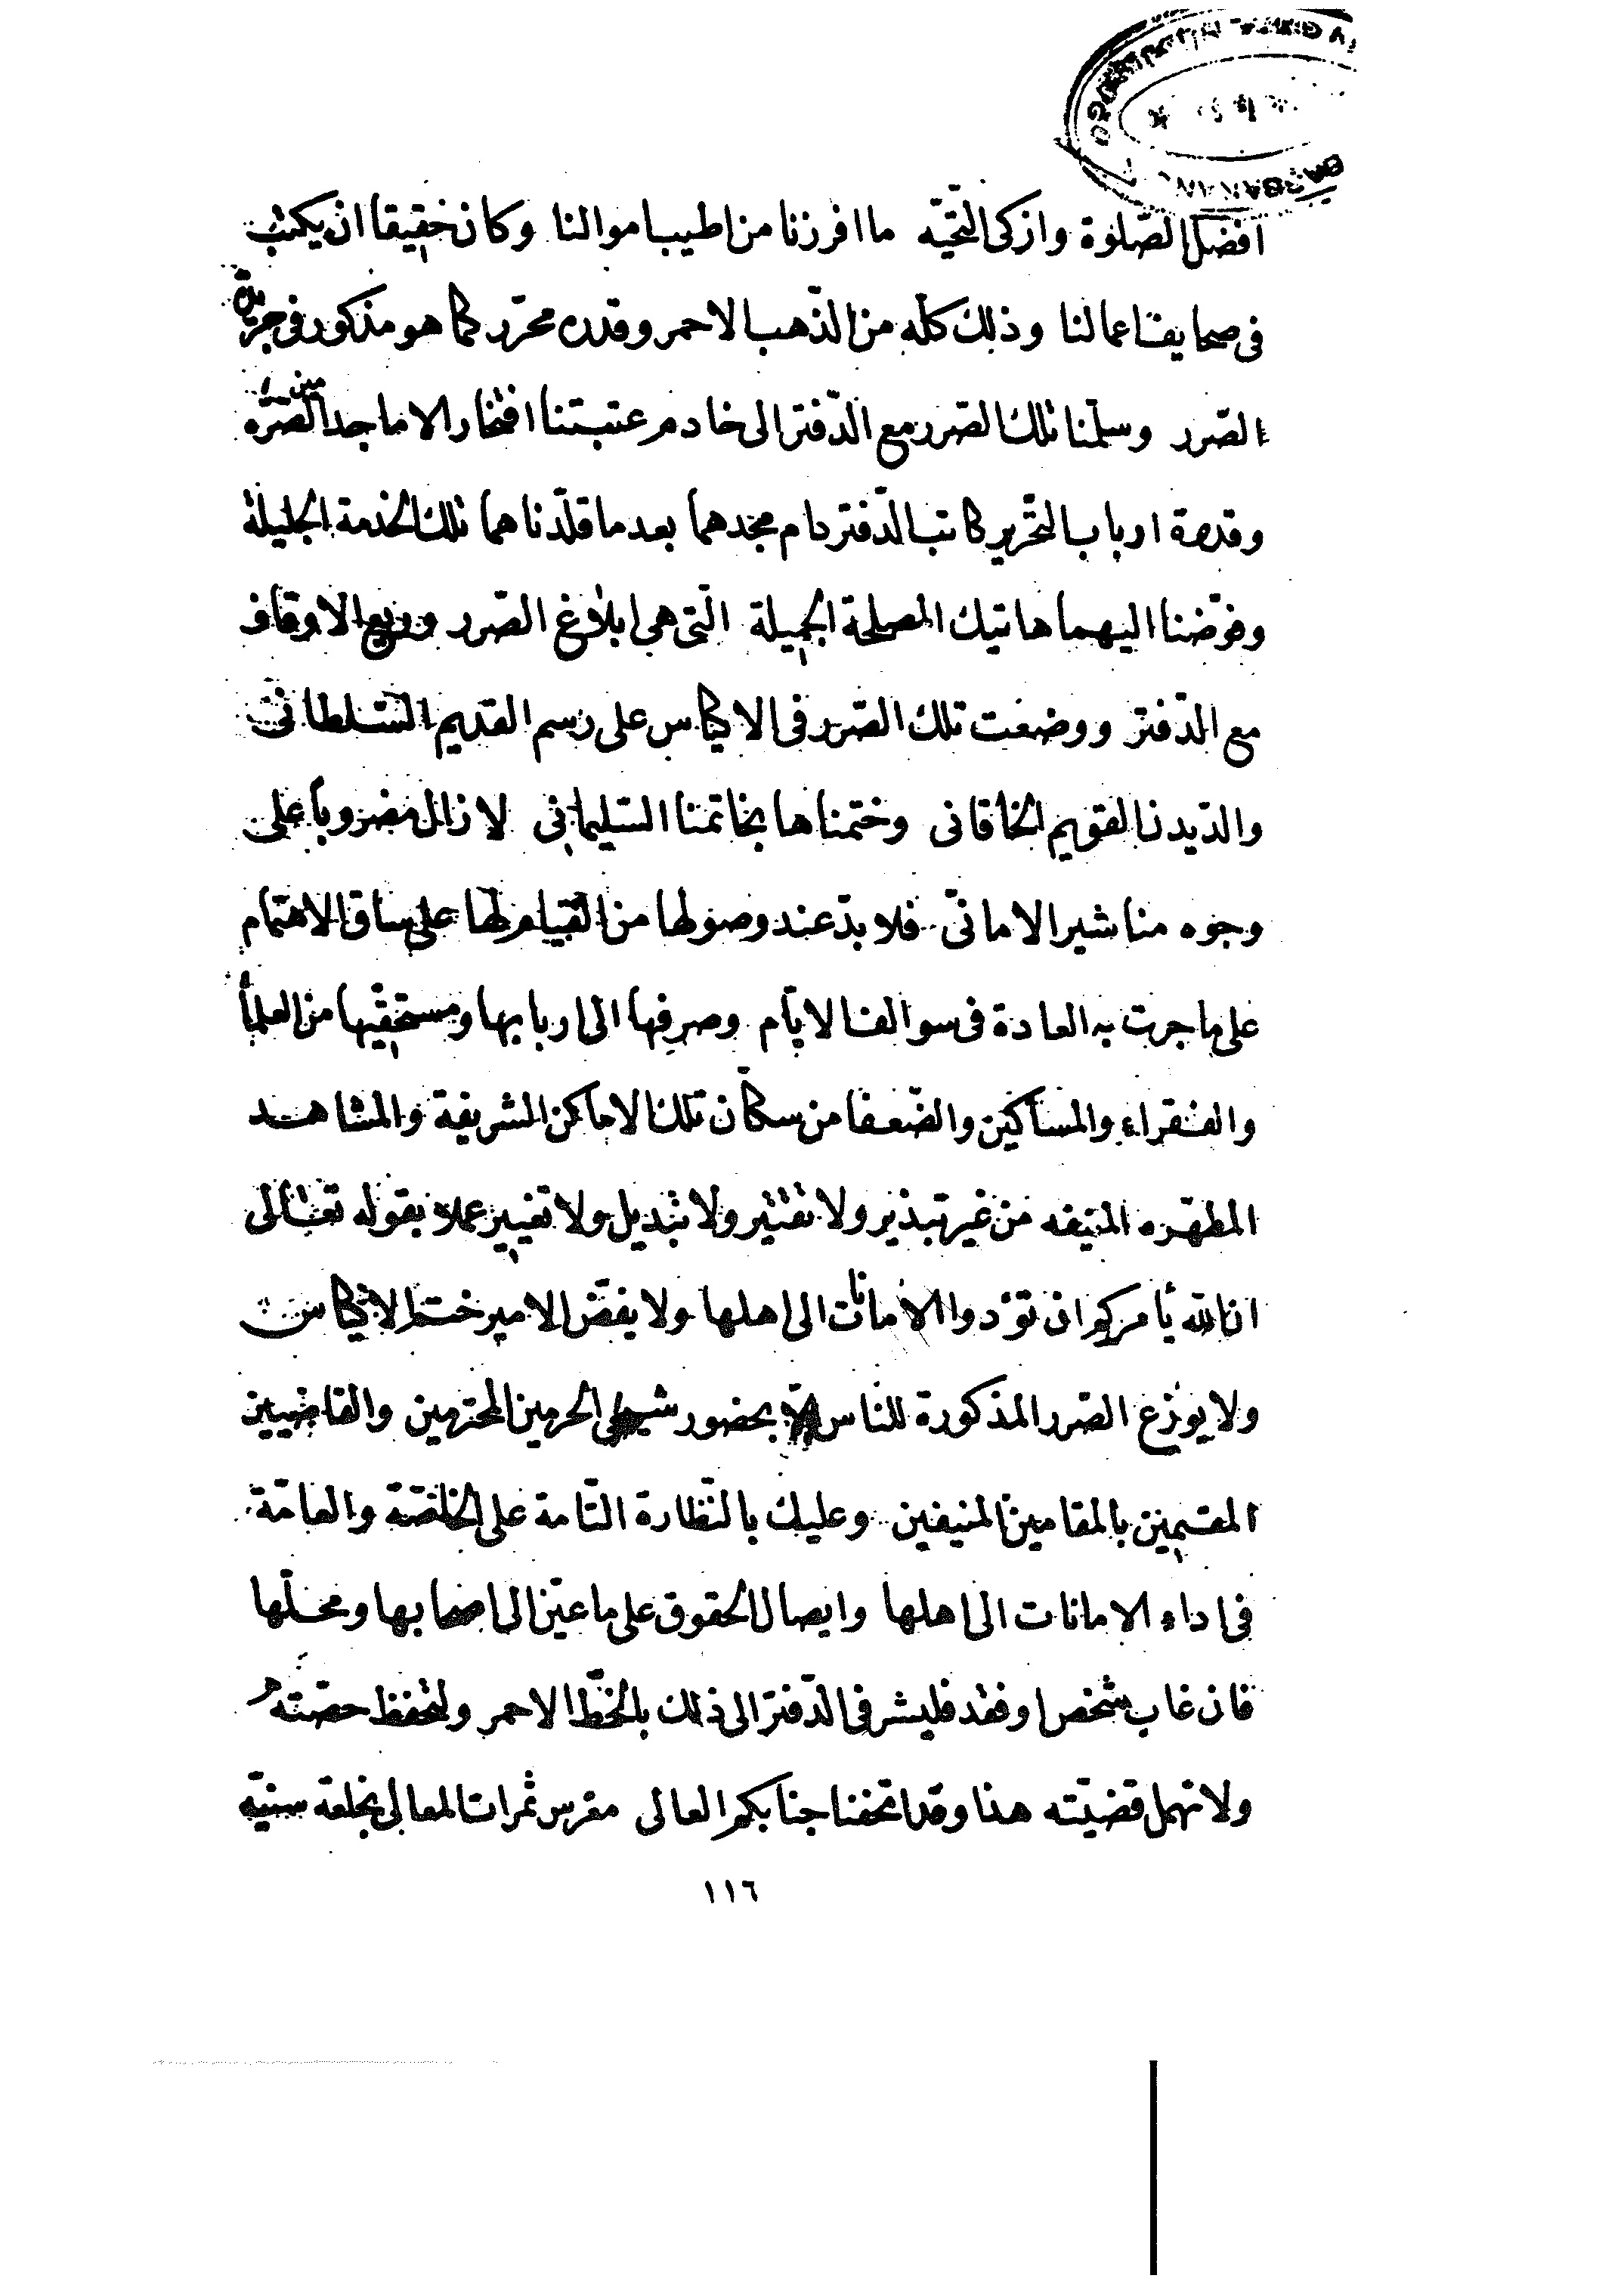 افضل الصّلوة وازكى التّحيّه ما افرزنا من اطيب اموالنا وكان حقيقا ان يكتب
فى صحايف اعمالنا وذلك كلّه من الذّهب الاحمر وقدره محرّر كما هو مذكور فى جريدة
الصّرر وسلّمنا تلك الصّرر مع الدّفتر الى خادم عتبتنا افتخار الاماجد امين الصّره
وقدوة ارباب التّحرير كاتب الدّفتر دام مجدهما بعد ما قلّدناهما تلك الخدمة الجليلة
وفوّضنا اليهما هاتيك المصلحة الجميلة الّتى هى ابلاغ الصّرر وريع الاوقاف
مع الدّفتر ووضعت تلك الصّرر فى الاكياس على رسم القديم السّلطانى
والدّيدن القويم الخاقانى وختمناها بخاتمنا السّليمانى لا زال مضروبا على
وجوه مناشير الامانّى فلا بدّ عند وصولها من القيام لها على ساق الاهتمام
على ما جرت به العادة فى سوالف الايّام وصرفها الى اربابها ومستحقّيها من العلمأ
والفقراء والمساكين والضّعفا من سكّان تلك الاماكن الشريفة والمشاهد
المطهّره المنيفه من غير تبذير ولا تقتير ولا تبديل ولا تغيير عملا بقوله تعالى
ان الله يأمركم ان تؤدوا الامانات الى اهلها ولا يفضّ الامير ختم الاكياس
ولا يوزع الصّرر المذكورة للناس الّا بحضور شيخى الحرمين المحترمين والقاضيين
المقيمين بالمقامين المنيفين وعليك بالنّظارة التّامة على الخاصّة والعامّة
فى اداء الامانات الى اهلها وايصال الحقوق على ما عيّن الى اصحابها ومحلّها
فان غاب شخص او فقد فليشر فى الدّفتر الى ذلك بالخّط الاحمر ولتحفظ حصّته
ولا تهمل قضيّته هذا وقد اتحفنا جنابكم العالى مغرس ثمرات المعالى بخلعة سنيّه
١١٦